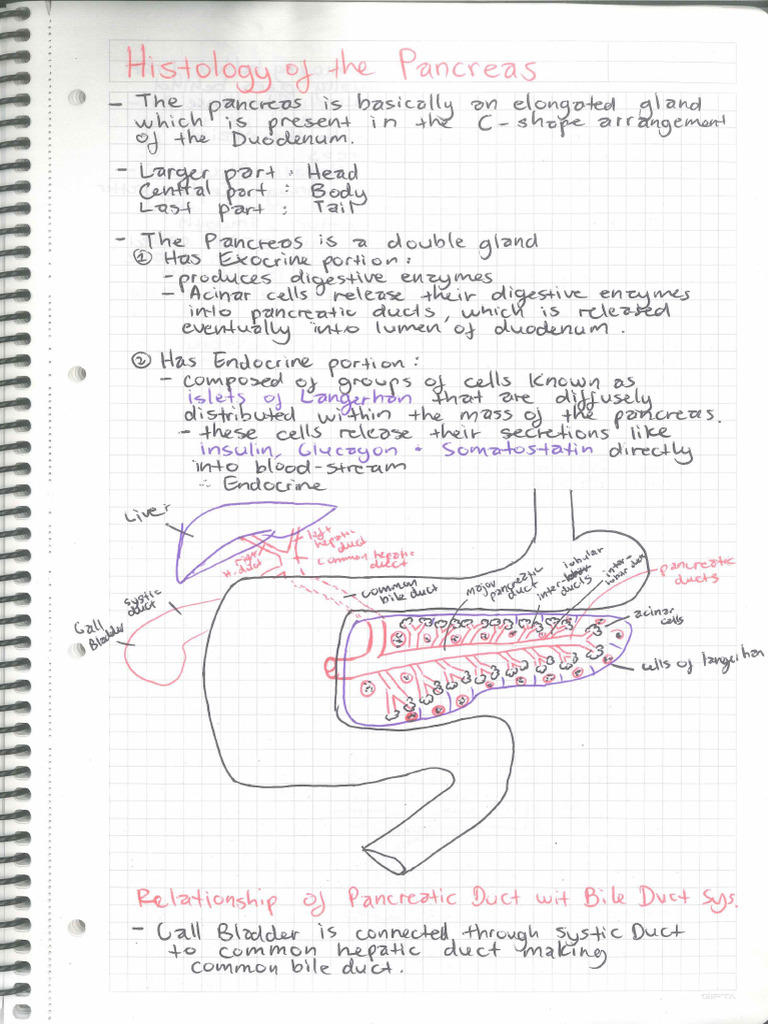 Histology of the Pancreas
- The pancreas is basically an elongated gland
which is present in the C-shape arrangement
of the Duodenum.
- Larger part : Head
Central part : Body
Last part : Tail
- The Pancreas is a double gland
① Has Exocrine portion :
- produces digestive enzymes
- Acinar cells release their digestive enzymes
into pancreatic ducts, which is released
eventually into lumen of duodenum .
② Has Endocrine portion :
- composed of groups of cells known as
islets of Langerhan that are diffusely
distributed within the mass of the pancreas.
- these cells release their secretions like
insulin, Glucagon + Somatostatin directly
into blood-stream
∴ Endocrine
Liver
left
hepatic
duct
right
H. duct
common hepatic
duct
common
bile duct
systic
duct
Gall
Bladder
major
pancreatic
duct
inter-lobular
ducts
inter-
lobar duct
pancreatic
ducts
acinar
cells
cells of langerhan
Relationship of Pancreatic Duct wit Bile Duct Sys.
- Gall Bladder is connected through systic Duct
to common hepatic duct making
common bile duct.